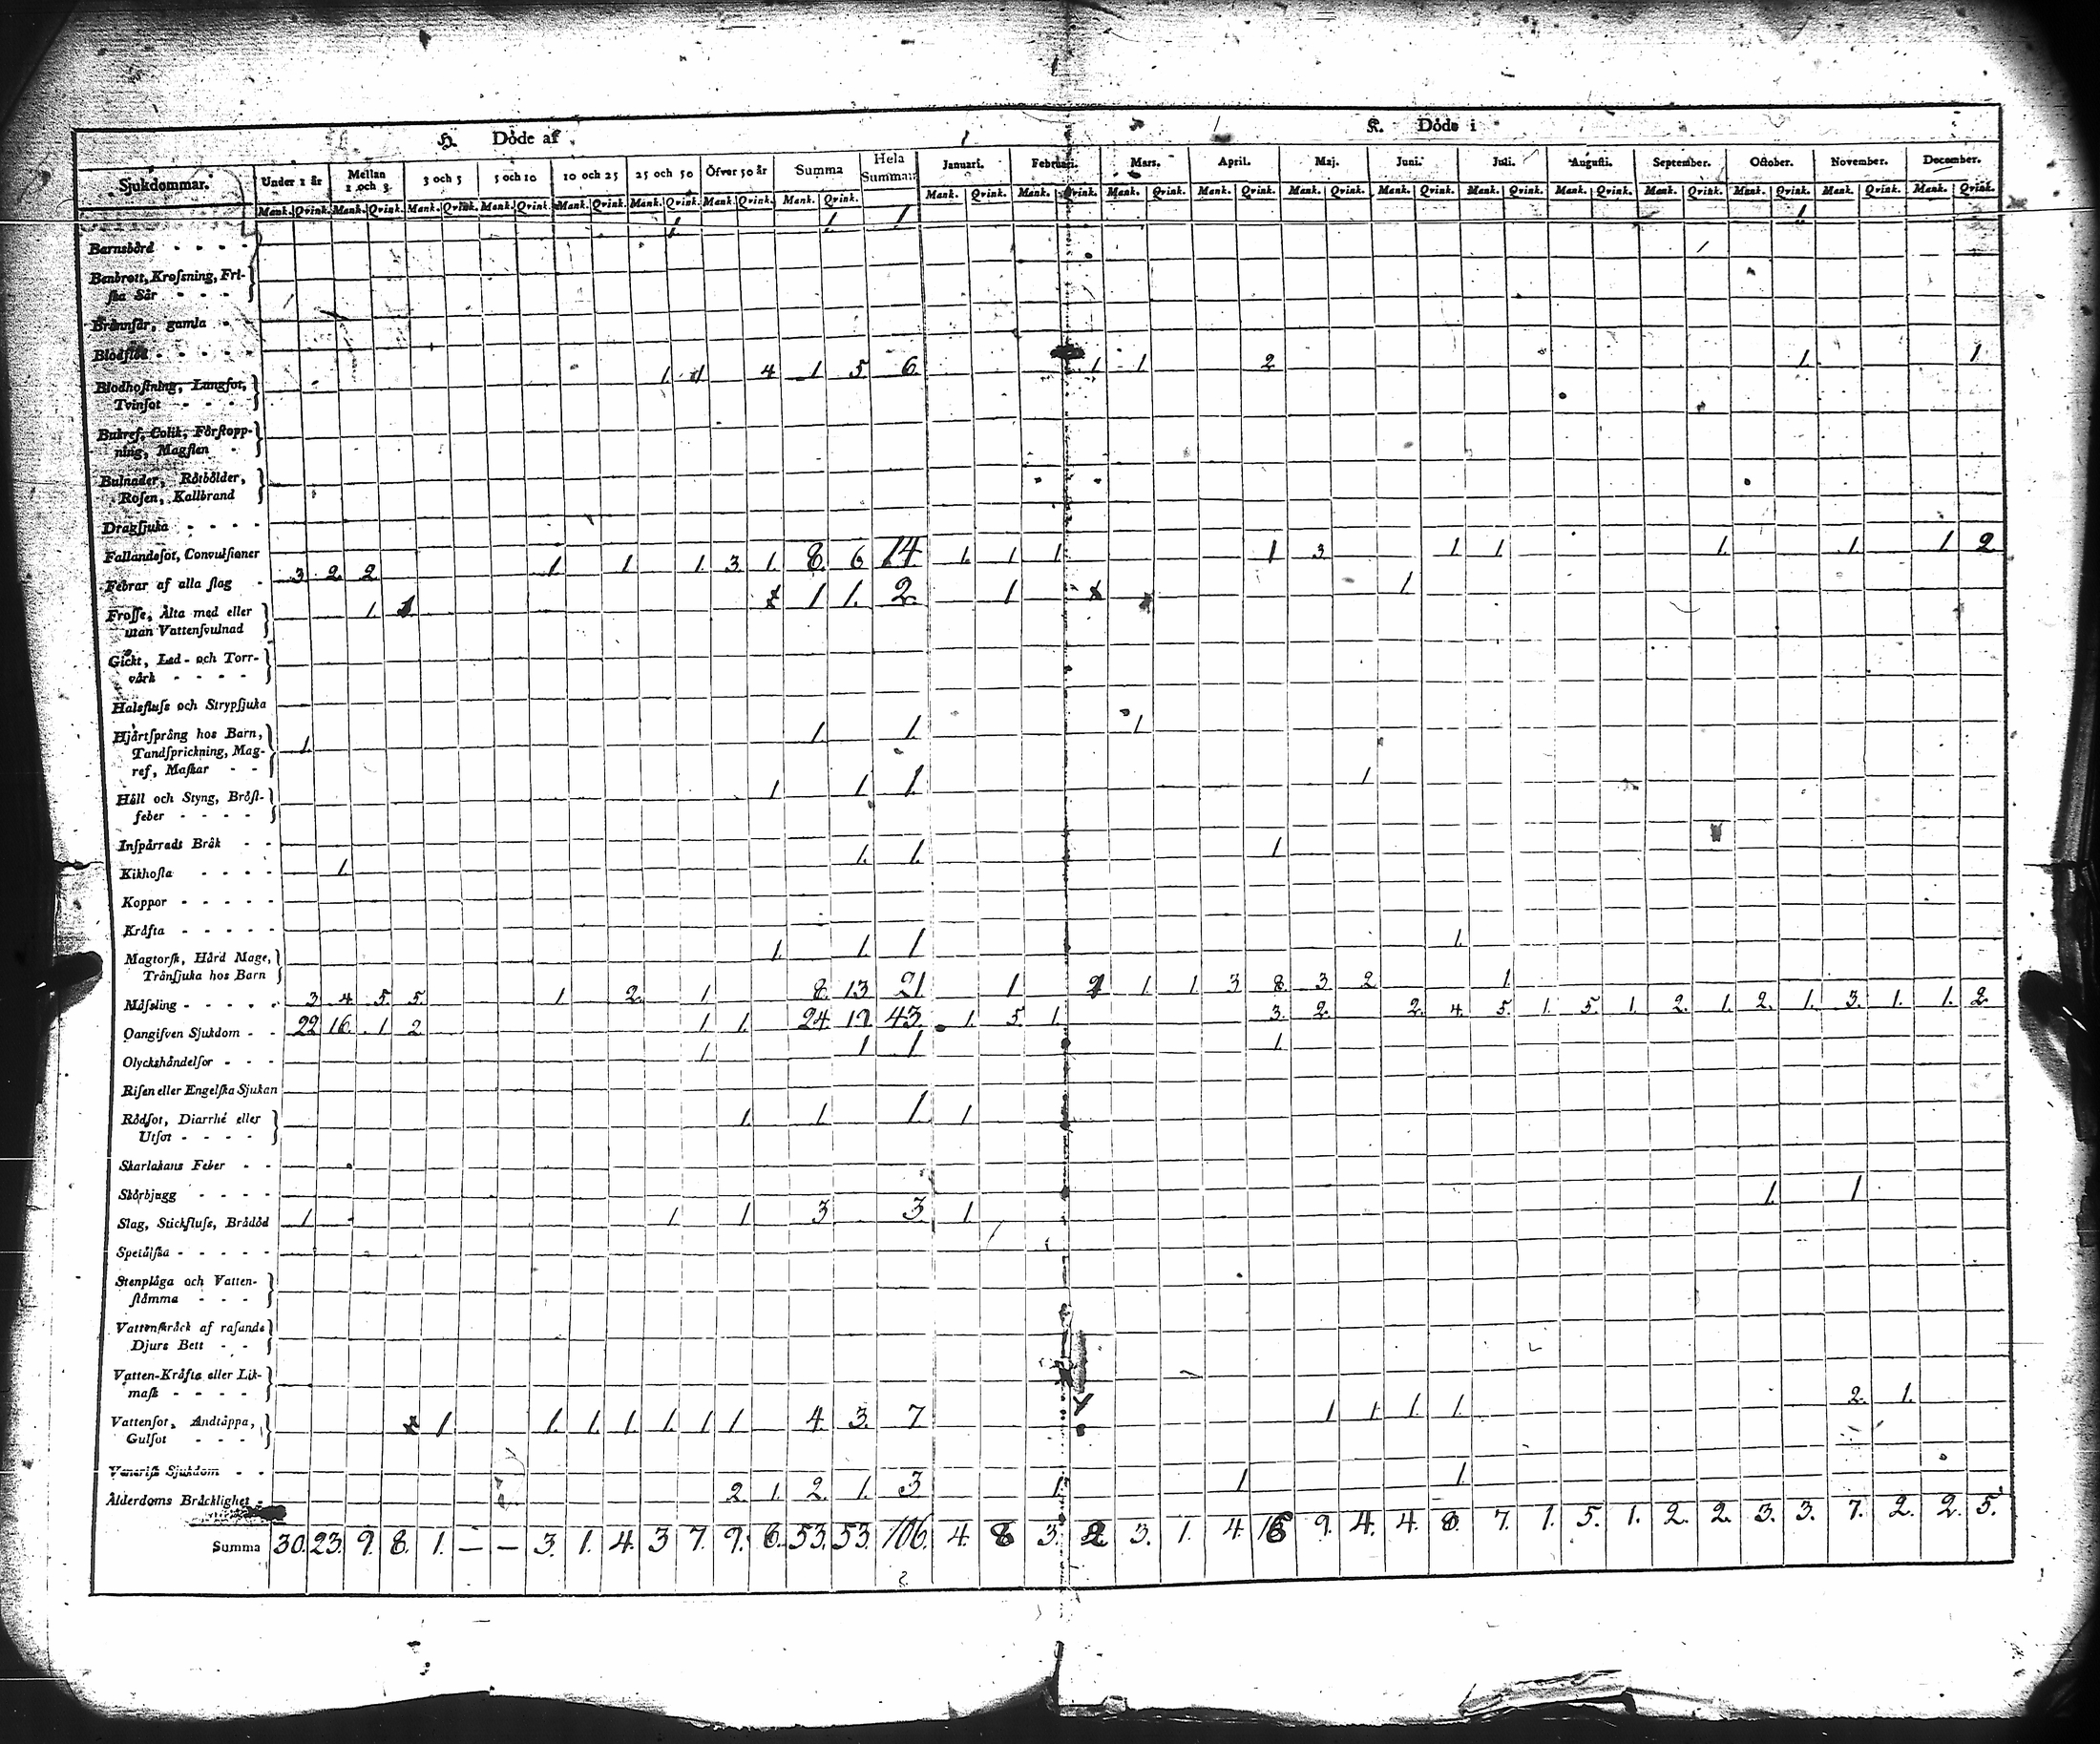 H. Döde af
K. Döde i
Sjukdommar. Under 1 år Mellan 1 och 3 3 och 5 5 och 10 10 och 25 25 och 50 Öfver 50 år Summa Hela Summan Januari. Februari. Mars. April. Maj. Juni. Juli. Augusti. September. October. November. December.
Mank. Qvink. Mank. Qvink. Mank. Qvink. Mank. Qvink. Mank. Qvink. Mank. Qvink. Mank. Qvink. Mank. Qvink. Mank. Qvink. Mank. Qvink. Mank. Qvink. Mank. Qvink. Mank. Qvink. Mank. Qvink. Mank. Qvink. Mank. Qvink. Mank. Qvink. Mank. Qvink. Mank. Qvink. Mank. Qvink.
Barnsbörd 1. 1. 1 1
Benbrott, Krosning, Fri-
ska Sår
Brännsår, gamla
Blodflöd
Blodhostning, Lungsot, 1. 1 4 1 5 6 1 1 2 1. 1
Tvinsot
Bukref, Colik, Förstopp-
ning, Magsten
Bulnader, Rötbölder,
Rosen, Kallbrand
Dragsjuka
Fallandesot, Convulsioner
Febrar af alla slag 3 2 2 1 1 1 3 1. 8 6 14 1. 1 1 1 3 1 1 1. 1 1 2
Frosse, Älta med eller 1. 1 1 1. 2 1 1
utan Vattensvulnad
Gickt, Led- och Torr-
värk
Halsfluss och Strypsjuka
Hjärtsprång hos Barn, 1. 1. 1. 1
Tandsprickning, Mag-
ref, Maskar
Håll och Styng, Bröst- 1 1 1. 1
feber
Inspärradt Bråk
Kikhosta 1. 1. 1. 1
Koppor
Kräfta
Magtorsk, Hård Mage, 1. 1. 1 1.
Trånsjuka hos Barn
Mässling 3 4 5 5 1 2 1 8 13 21 1 2 1. 1. 3 8 3 2 1
Oangifven Sjukdom 22 16. 1 2 1 1. 24. 19 43. 1. 5. 1. 3. 2. 2. 4. 5. 1. 5. 1. 2. 1. 2. 1. 3. 1. 1. 2.
Olyckshändelsor 1 1 1 1
Risen eller Engelska Sjukan
Rödsot, Diarrhé eller 1. 1 1 1
Utsot
Skarlakans Feber
Skörbjugg
Slag, Stickfluss, Brådöd 1 1 1 3 3 1. 1. 1
Spetälska
Stenplåga och Vatten-
stämma
Vattenskräck af rasande
Djurs Bett
Vatten-Kräfta eller Lik-
mask
Vattensot, Andtäppa, 1 1. 1. 1 1. 1 1 4. 3. 7 1 1 1 1. 2 1.
Gulsot
Venerisk Sjukdom
Ålderdoms Bräcklighet 2. 1. 2. 1. 3 1 1 1
Summa 30. 23. 9. 8. 1. — — 3. 1. 4. 3 7. 9. 6. 53. 53. 106. 4. 8 3. 2 3. 1. 4. 16 9. 4. 4. 8. 7. 1. 5. 1. 2. 2. 3. 3. 7. 2. 2. 5.